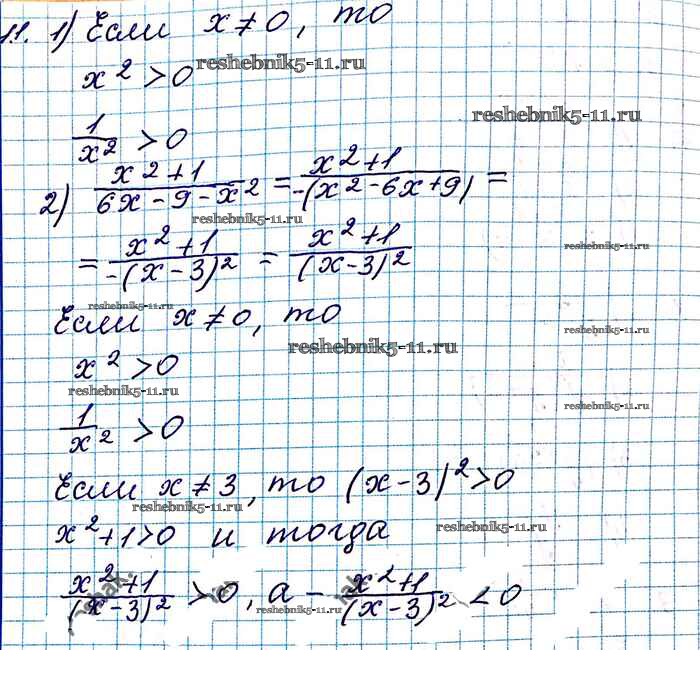 11. 1) Если x ≠ 0, то
reshebnik5-11.ru
x² > 0
reshebnik5-11.ru
1/x² > 0
2) (x²+1)/(6x-9-x²) = (x²+1)/(-(x²-6x+9)) =
reshebnik5-11.ru
= (x²+1)/(-(x-3)²) = (x²+1)/(x-3)²
reshebnik5-11.ru
reshebnik5-11.ru
Если x ≠ 0, то
reshebnik5-11.ru
reshebnik5-11.ru
x² > 0
reshebnik5-11.ru
reshebnik5-11.ru
1/x² > 0
Если x ≠ 3, то (x-3)² > 0
reshebnik5-11.ru
x²+1>0 и тогда
reshebnik5-11.ru
(x²+1)/(x-3)² > 0, а - (x²+1)/(x-3)² < 0
reshebnik5-11.ru